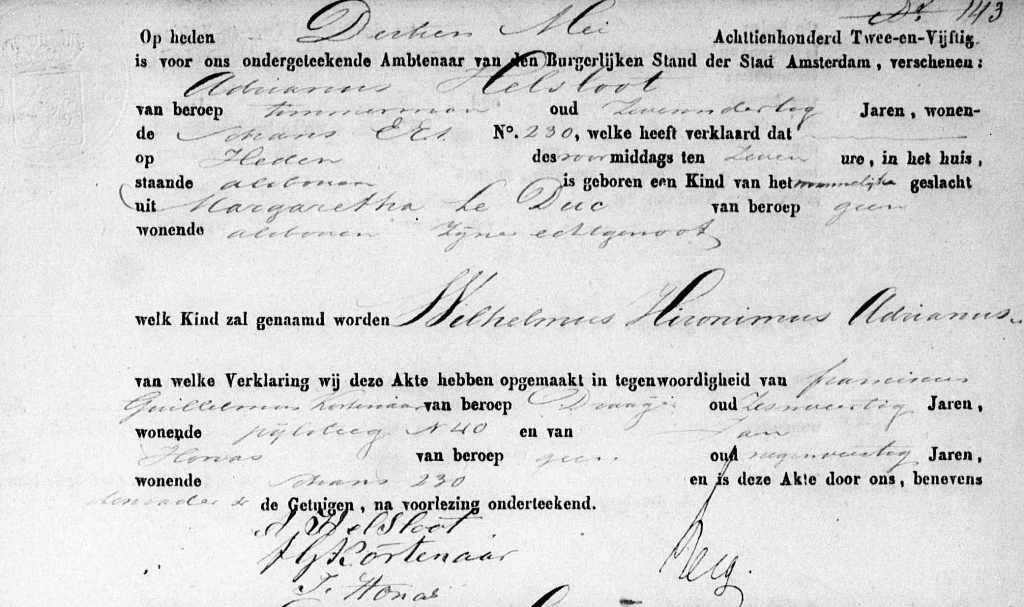 N° 143
Op heden Dertien Mei Achttienhonderd Twee-en-Vijftig
is voor ons ondergeteekende Ambtenaar van den Burgerlijken Stand der Stad Amsterdam, verschenen:
Adrianus Helsloot
van beroep timmerman oud Zevenendertig Jaren, wonen-
de Schans No. 230, welke heeft verklaard dat
op Heden des voor middags ten Zeven ure, in het huis,
staande alsboven is geboren een Kind van het mannelijke geslacht
uit Margaretha Le Duc van beroep geen
wonende alsboven Zijne echtgenoot
welk Kind zal genaamd worden Wilhelmus Hironimus Adrianus
van welke Verklaring wij deze Akte hebben opgemaakt in tegenwoordigheid van franciscus
Guillelmus Kortenaar van beroep oud Zesenveertig Jaren,
wonende pijlsteeg N 40 en van Jan
Honas van beroep geen oud negenveertig Jaren,
wonende Schans 230 en is deze Akte door ons, benevens
den vader & de Getuigen, na voorlezing onderteekend.
A Helsloot
FG Kortenaar
J. Honas